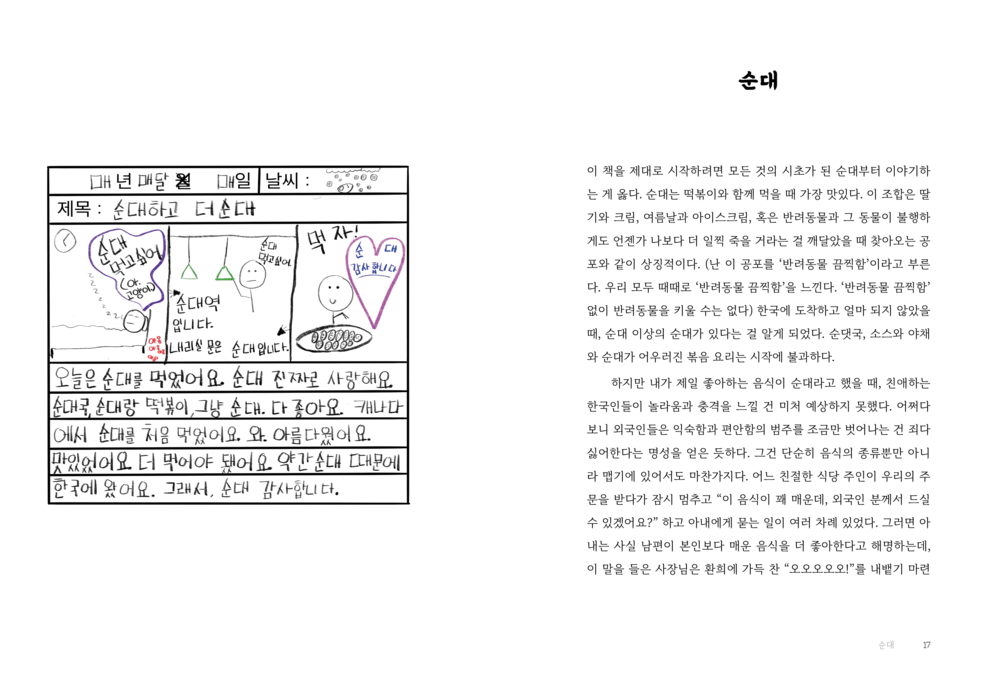 매년 매달 매일 날씨 :
제목 : 순대하고 더 순대
순대
먹고싶어
(아,
고양이)
zzzz
zz!
아야
순대
먹고싶어
순대역
입니다.
내리실 문은 순대입니다.
먹자!
순대
감사합니다
오늘은 순대를 먹었어요. 순대 진짜로 사랑해요.
순대국, 순대랑 떡볶이, 그냥 순대. 다 좋아요. 캐나다
에서 순대를 처음 먹었어요. 와. 아름다웠어요.
맛있었어요. 더 먹어야 됐어요. 약간 순대 때문에
한국에 왔어요. 그래서, 순대 감사합니다.
순대
이 책을 제대로 시작하려면 모든 것의 시초가 된 순대부터 이야기하
는 게 옳다. 순대는 떡볶이와 함께 먹을 때 가장 맛있다. 이 조합은 딸
기와 크림, 여름날과 아이스크림, 혹은 반려동물과 그 동물이 불행하
게도 언젠가 나보다 더 일찍 죽을 거라는 걸 깨달았을 때 찾아오는 공
포와 같이 상징적이다. (난 이 공포를 ‘반려동물 끔찍함’이라고 부른
다. 우리 모두 때때로 ‘반려동물 끔찍함’을 느낀다. ‘반려동물 끔찍함’
없이 반려동물을 키울 수는 없다) 한국에 도착하고 얼마 되지 않았을
때, 순대 이상의 순대가 있다는 걸 알게 되었다. 순댓국, 소스와 야채
와 순대가 어우러진 볶음 요리는 시작에 불과하다.
하지만 내가 제일 좋아하는 음식이 순대라고 했을 때, 친애하는
한국인들이 놀라움과 충격을 느낄 건 미처 예상하지 못했다. 어쩌다
보니 외국인들은 익숙함과 편안함의 범주를 조금만 벗어나는 건 죄다
싫어한다는 명성을 얻은 듯하다. 그건 단순히 음식의 종류뿐만 아니
라 맵기에 있어서도 마찬가지다. 어느 친절한 식당 주인이 우리의 주
문을 받다가 잠시 멈추고 “이 음식이 꽤 매운데, 외국인 분께서 드실
수 있겠어요?” 하고 아내에게 묻는 일이 여러 차례 있었다. 그러면 아
내는 사실 남편이 본인보다 매운 음식을 더 좋아한다고 해명하는데,
이 말을 들은 사장님은 환희에 가득 찬 “오오오오오!”를 내뱉기 마련
순대 17